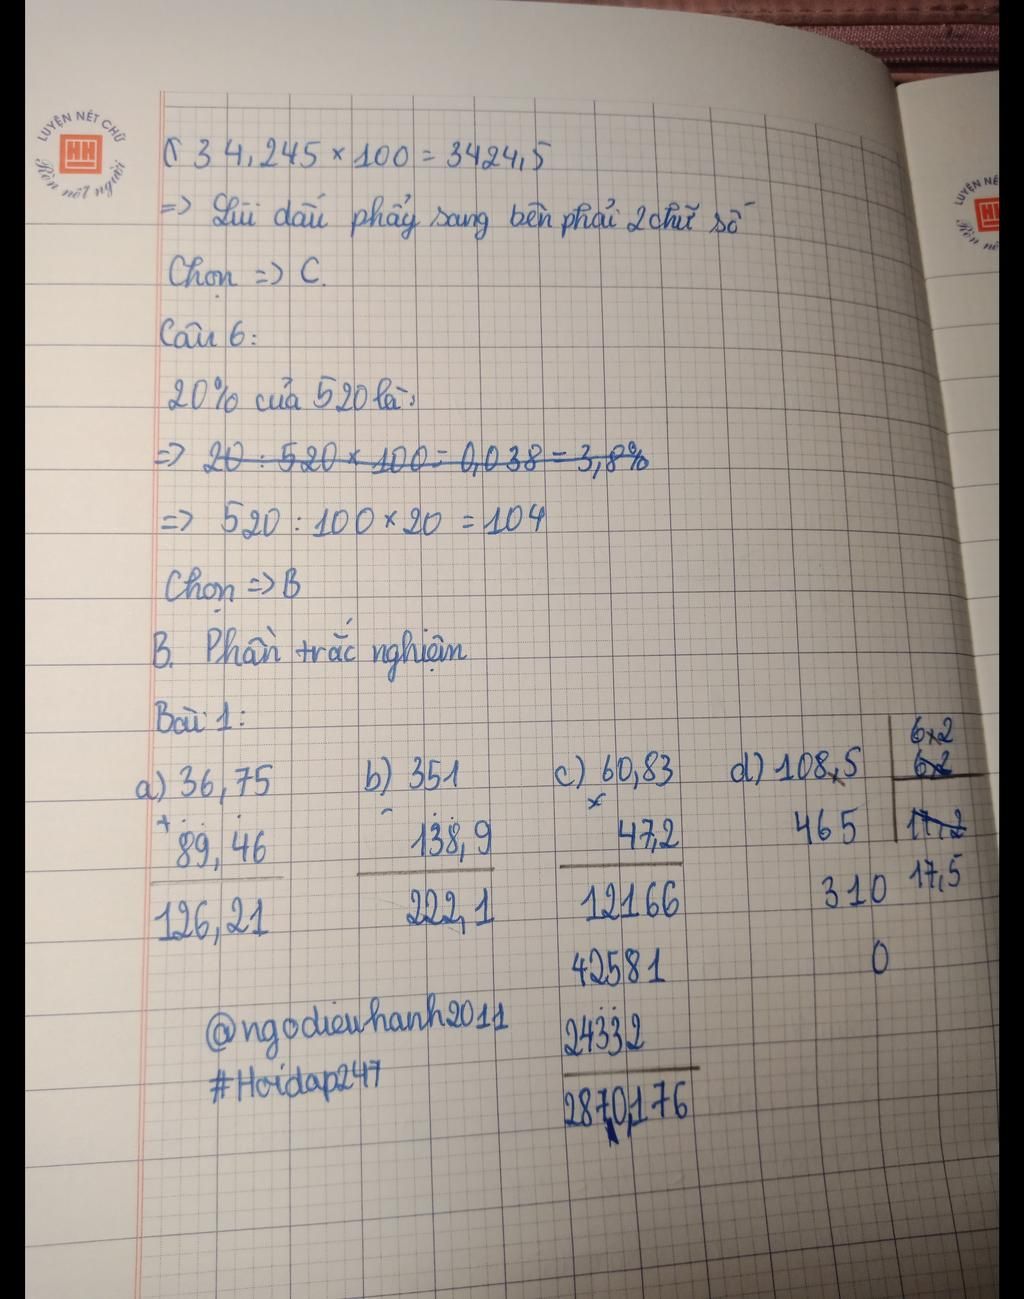 LUYỆN NÉT CHỮ
HH
Rèn nết người
LUYỆN NÉ
34,245 × 100 = 3424,5
=> Lùi dấu phẩy sang bên phải 2 chữ số
Chọn => C.
Câu 6:
20% của 520 là:
=> 20 : 520 × 100 = 0,038 = 3,8%
=> 520 : 100 × 20 = 104
Chọn => B
B. Phần trắc nghiệm
Bài 1:
a) 36,75 b) 351 c) 60,83 d) 108,5 6,2
+ 89,46 - 138,9 × 47,2 465 17,5
126,21 222,1 12166 310
42581 0
24332
2870,176
@ngodieuhanh2011
#Hoidap247